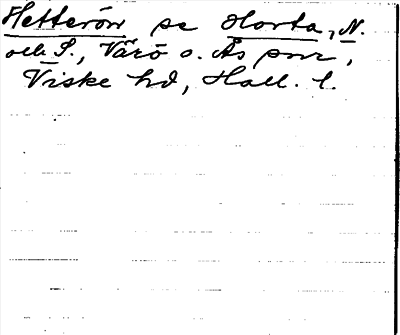 Hetterön se Horta, N.
och S., Värö o. Ås snr,
Viske hd, Hall. l.